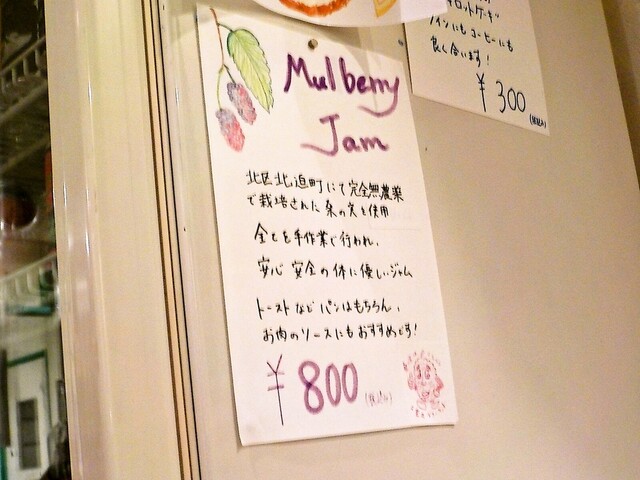 Mulberry
Jam
北区北迫町にて完全無農薬
で栽培された桑の実を使用
全てを手作業で行われ、
安心 安全の体に優しいジャム
トーストなど パンはもちろん、
お肉のソースにもおすすめです!
¥800 (税込み)
キャロットケーキ
ワインにもコーヒーにも
良く合います!
¥300 (税込み)